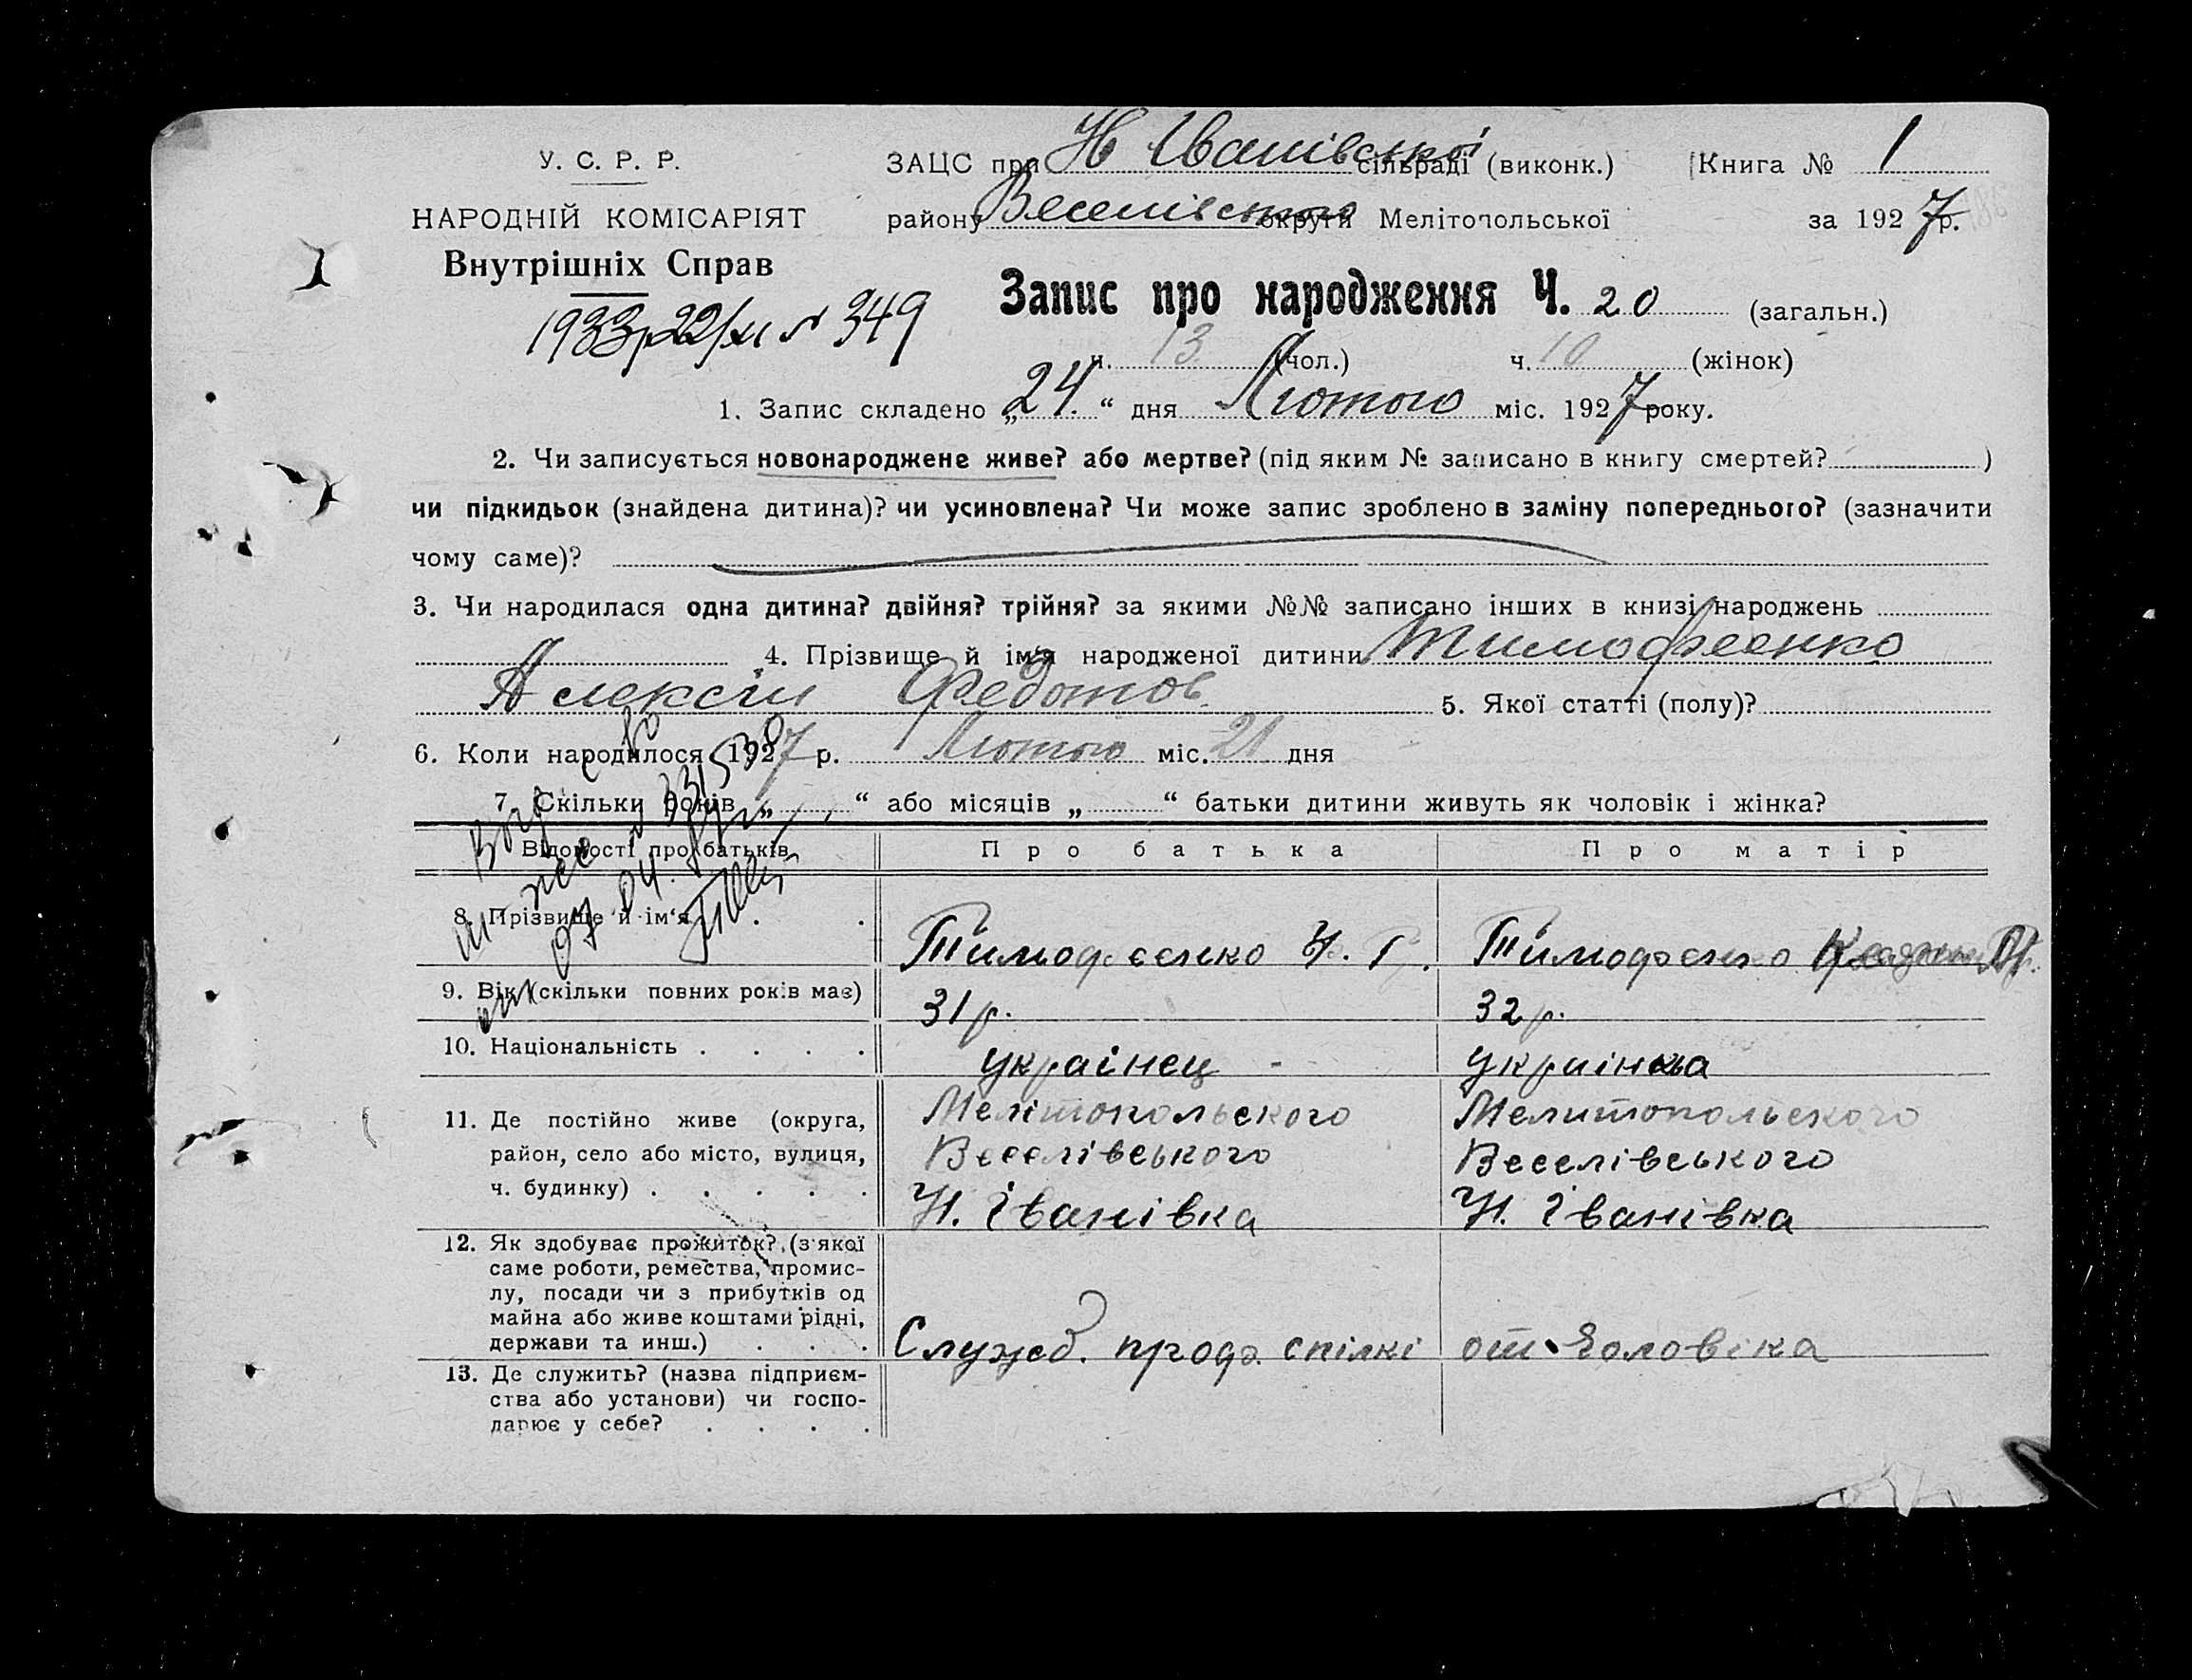 У. С. Р. Р.
НАРОДНІЙ КОМІСАРІЯТ
Внутрішніх Справ
1933р 22/XI № 349
ЗАЦС при Н Іванівської сільраді (виконк.)
Книга № 1
району Веселівського округи Мелітопольської
за 1927 р.
Запис про народження Ч. 20 (загальн.)
ч. 13 (чол.) ч. 10 (жінок)
1. Запис складено „24.“ дня Лютого міс. 1927 року.
2. Чи записується новонароджене живе? або мертве? (під яким № записано в книгу смертей? )
чи підкидьок (знайдена дитина)? чи усиновлена? Чи може запис зроблено в заміну попереднього? (зазначити
чому саме)?
3. Чи народилася одна дитина? двійня? трійня? за якими №№ записано інших в книзі народжень
4. Прізвище й ім'я народженої дитини Тимофеенко
Алексій Федотов. 5. Якої статті (полу)?
6. Коли народилося 1927 р. Лютого міс. 21 дня
7. Скільки років „ “ або місяців „ “ батьки дитини живуть як чоловік і жінка?
Відомості про батьків
Про батька
Про матір
8. Прізвище й ім'я
Тимофєєнко
Тимофєнко
9. Вік (скільки повних років має)
31 р.
32 р.
10. Національність . . . .
украінец
украінка
11. Де постійно живе (округа,
район, село або місто, вулиця,
ч. будинку) . . . . .
Мелітопольского
Веселівського
Н. Іванівка
Мелитопольского
Веселівського
Н. Іванівка
12. Як здобуває прожиток? (з якої
саме роботи, ремества, промис-
лу, посади чи з прибутків од
майна або живе коштами рідні,
держави та инш.) . . .
Служб. спілкі
от чоловіка
13. Де служить? (назва підприєм-
ства або установи) чи госпо-
дарює у себе? . . . .